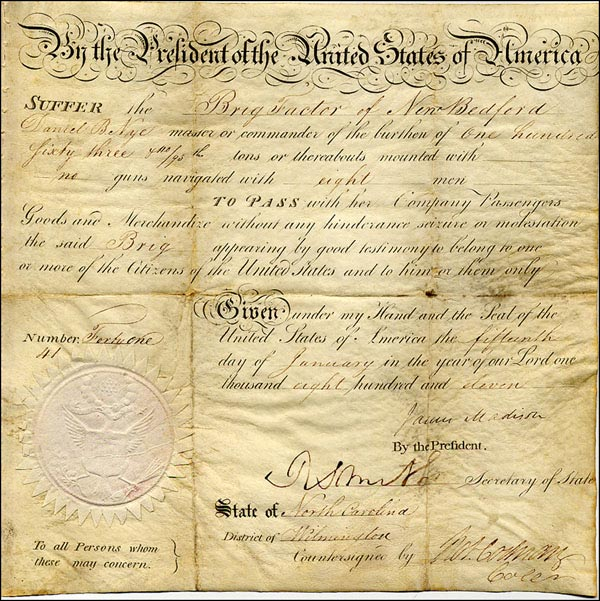 By the President of the United States of America
SUFFER the Brig Factor of New Bedford
Daniel B. Nye master or commander of the burthen of One hundred
Sixty three /95th tons or thereabouts mounted with
no guns navigated with eight men
TO PASS with her Company Passengers
Goods and Merchandize without any hinderance seizure or molestation
the said Brig appearing by good testimony to belong to one
or more of the Citizens of the United States and to him or them only
Given under my Hand and the Seal of the
United States of America the fifteenth
day of January in the year of our Lord one
thousand eight hundred and eleven
Number. Forty one
41
James Madison
By the President.
Secretary of State
State of North Carolina
District of Wilmington
Countersigned by
To all Persons whom
these may concern.